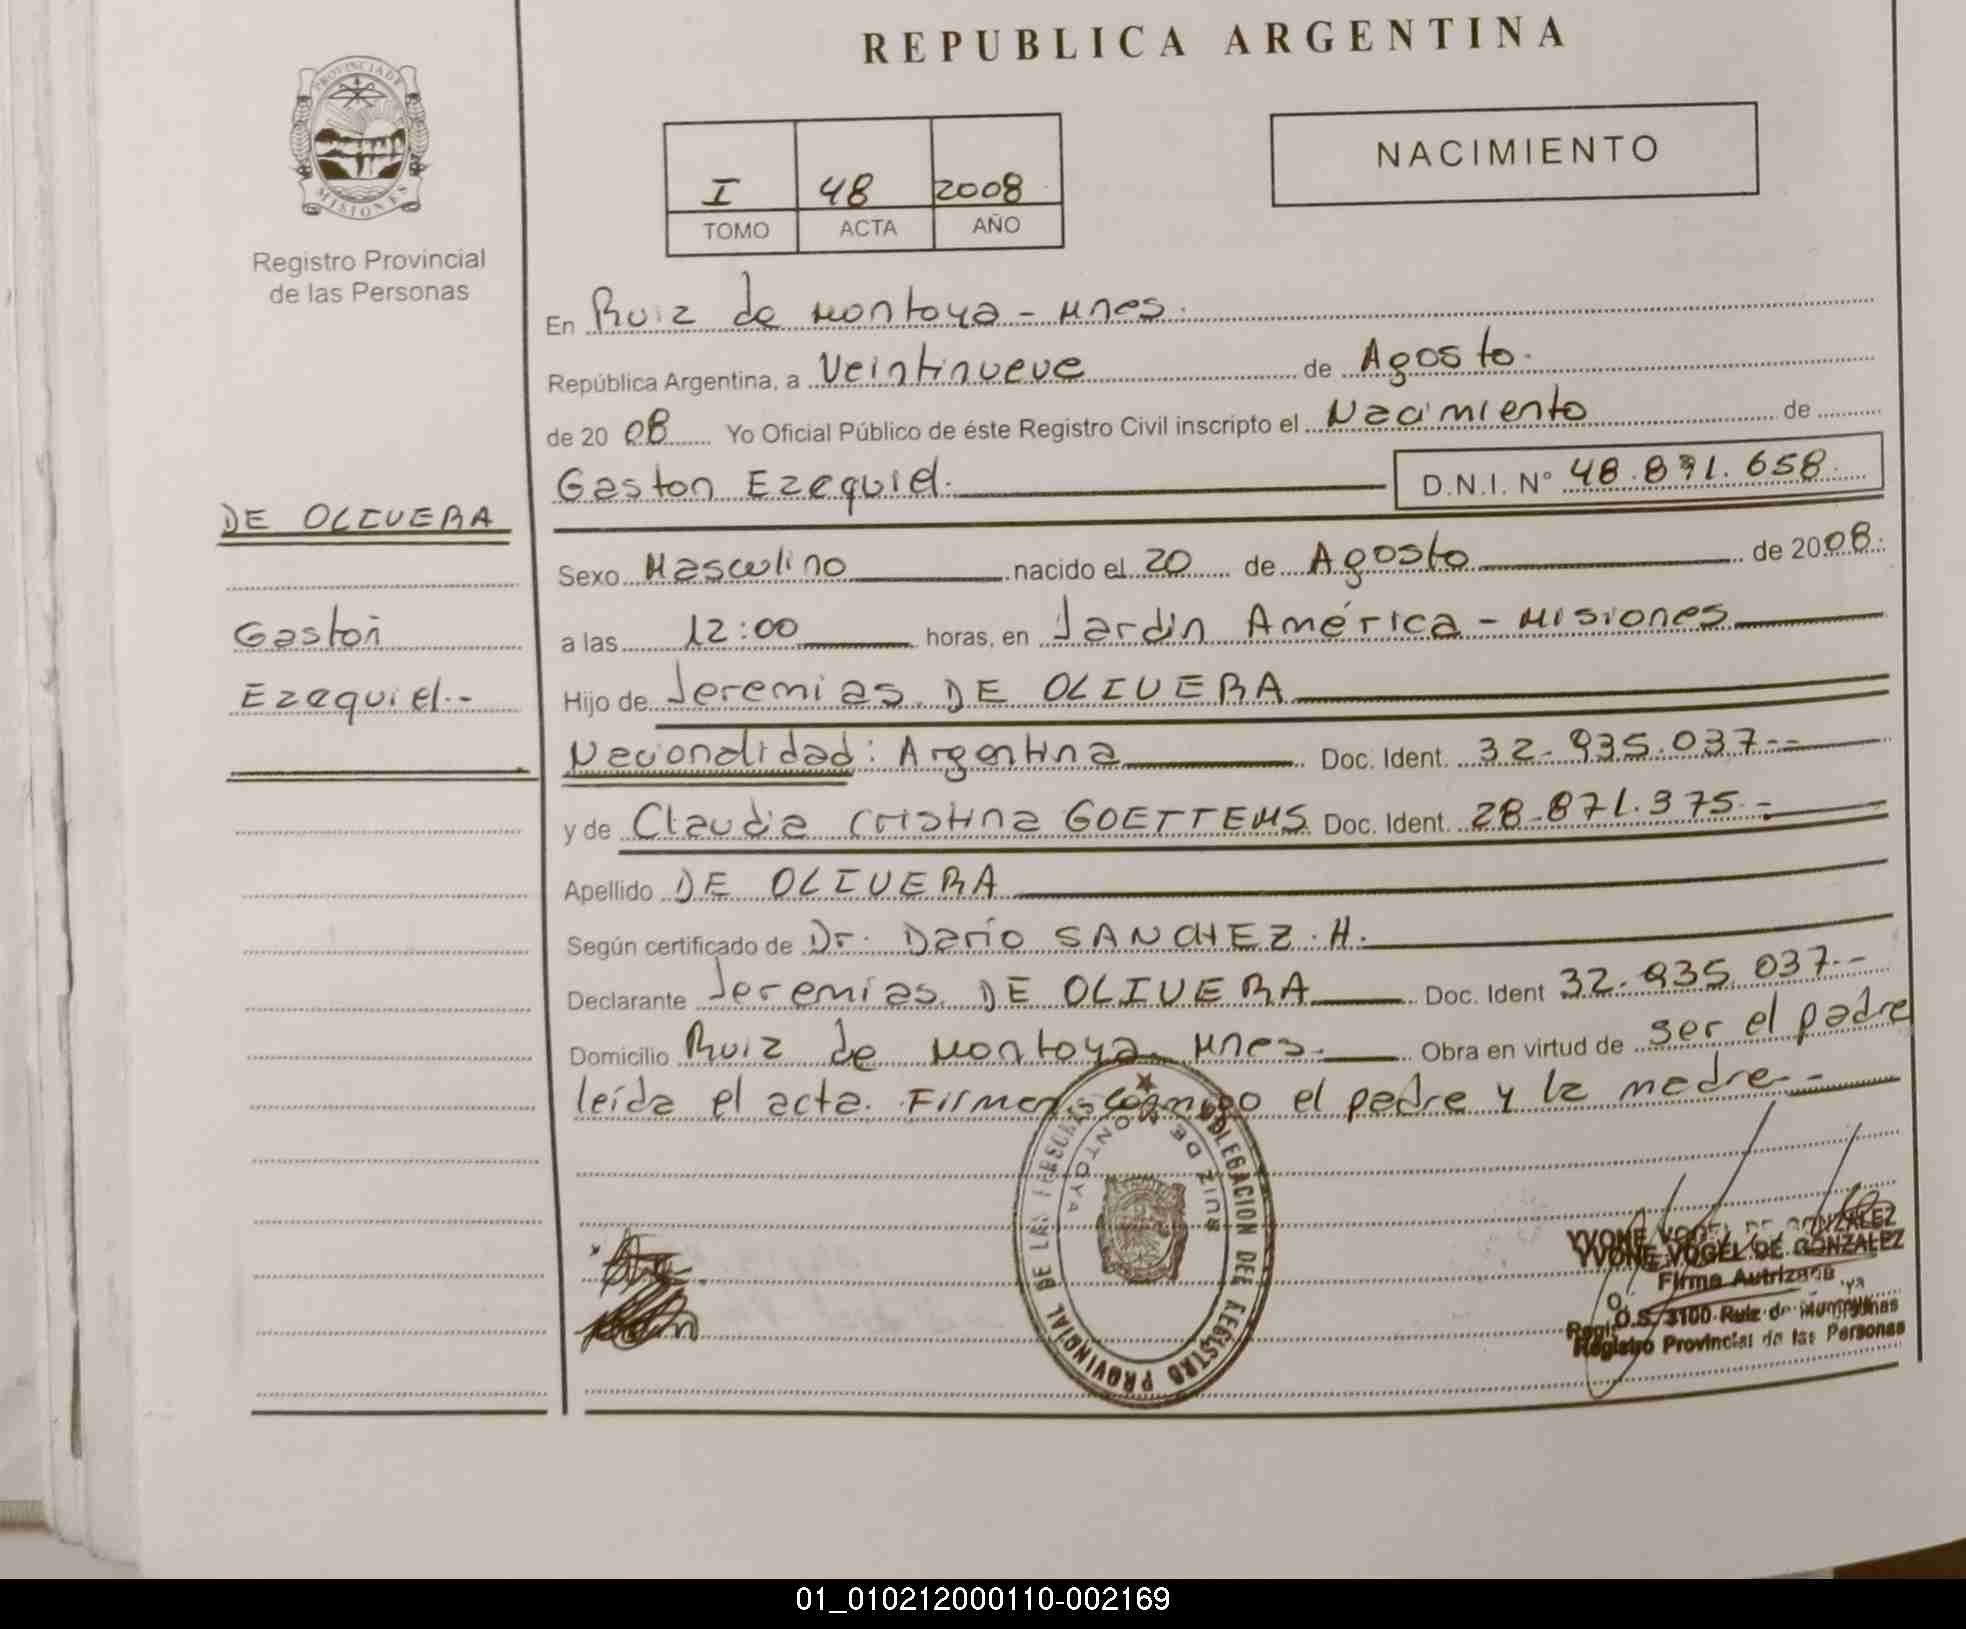 REPUBLICA ARGENTINA
PROVINCIA DE
MISIONES
Registro Provincial
de las Personas
NACIMIENTO
I 48 2008
TOMO ACTA AÑO
En Ruiz de Montoya - Mnes.
República Argentina, a Veintinueve de Agosto.
de 20 08 Yo Oficial Público de éste Registro Civil inscripto el Nacimiento de
Gaston Ezequiel. D.N.I. N° 48.891.658.
DE OLIVERA
Gaston
Ezequiel.-
Sexo Masculino nacido el 20 de Agosto de 2008.
a las 12:00 horas, en Jardin América - Misiones
Hijo de Jeremias DE OLIVERA
Nacionalidad: Argentina Doc. Ident. 32.935.037.-
y de Claudia Cristina GOETTEMS Doc. Ident. 28.871.375.-
Apellido DE OLIVERA
Según certificado de Dr. Darío SANCHEZ. H.
Declarante Jeremías DE OLIVERA Doc. Ident 32.935.037.-
Domicilio Ruiz de Montoya. Mnes. Obra en virtud de ser el padre
leída el acta. Firman conmigo el padre y la madre.-
DELEGACION DEL REGISTRO PROVINCIAL DE LAS PERSONAS
RUIZ DE MONTOYA
YVONE VOGEL DE GONZALEZ
YVONE VOGEL DE GONZALEZ
Firma Autrizada
O.S. 3100 Ruiz de
Registro Provincial de las Personas
01_010212000110-002169